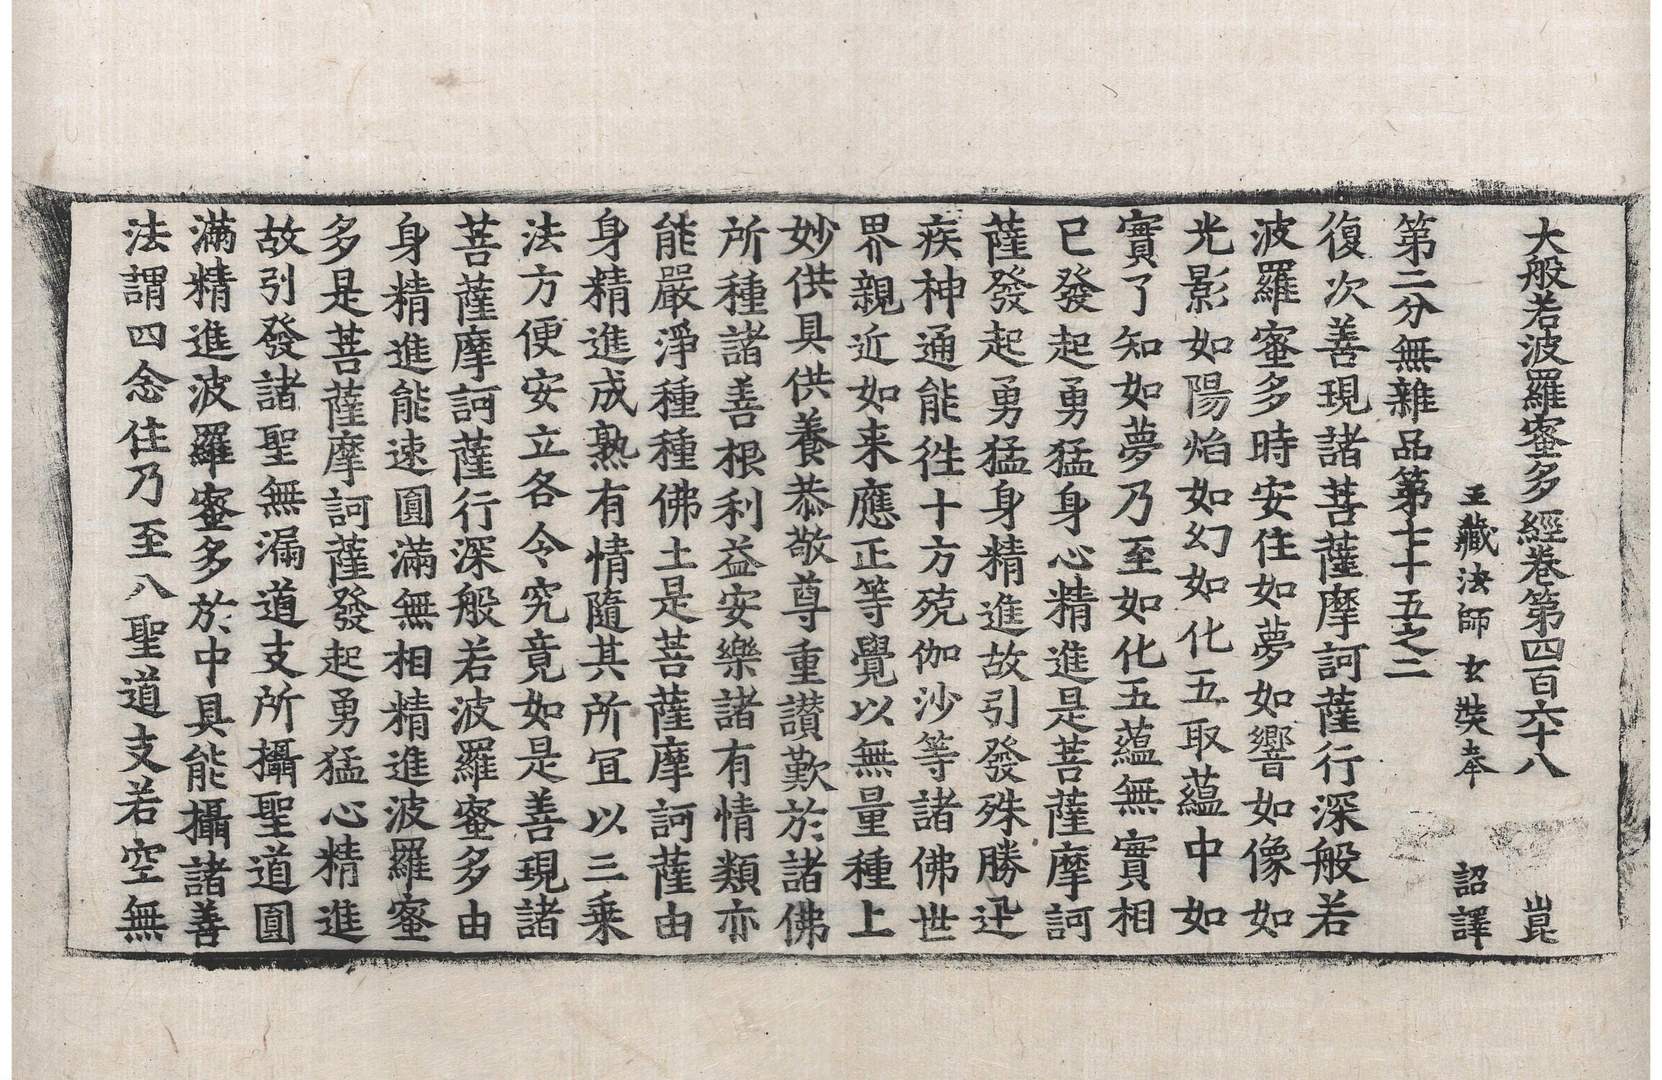 大般若波羅蜜多經卷第四百六十八 崑
三藏法師玄奘奉 詔譯
第二分無雜品第七十五之二
復次善現諸菩薩摩訶薩行深般若
波羅蜜多時安住如夢如響如像如
光影如陽焰如幻如化五取蘊中如
實了知如夢乃至如化五蘊無實相
已發起勇猛身心精進是菩薩摩訶
薩發起勇猛身精進故引發殊勝迅
疾神通能往十方殑伽沙等諸佛世
界親近如来應正等覺以無量種上
妙供具供養恭敬尊重讃歎於諸佛
所種諸善根利益安樂諸有情類亦
能嚴淨種種佛土是菩薩摩訶薩由
身精進成熟有情隨其所宜以三乗
法方便安立各令究竟如是善現諸
菩薩摩訶薩行深般若波羅蜜多由
身精進能速圓滿無相精進波羅蜜
多是菩薩摩訶薩發起勇猛心精進
故引發諸聖無漏道支所攝聖道圓
滿精進波羅蜜多於中具能攝諸善
法謂四念住乃至八聖道支若空無